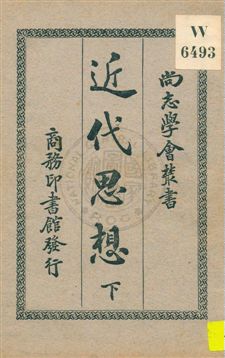 W
6493
尚志學會叢書
近代思想
下
商務印書館發行